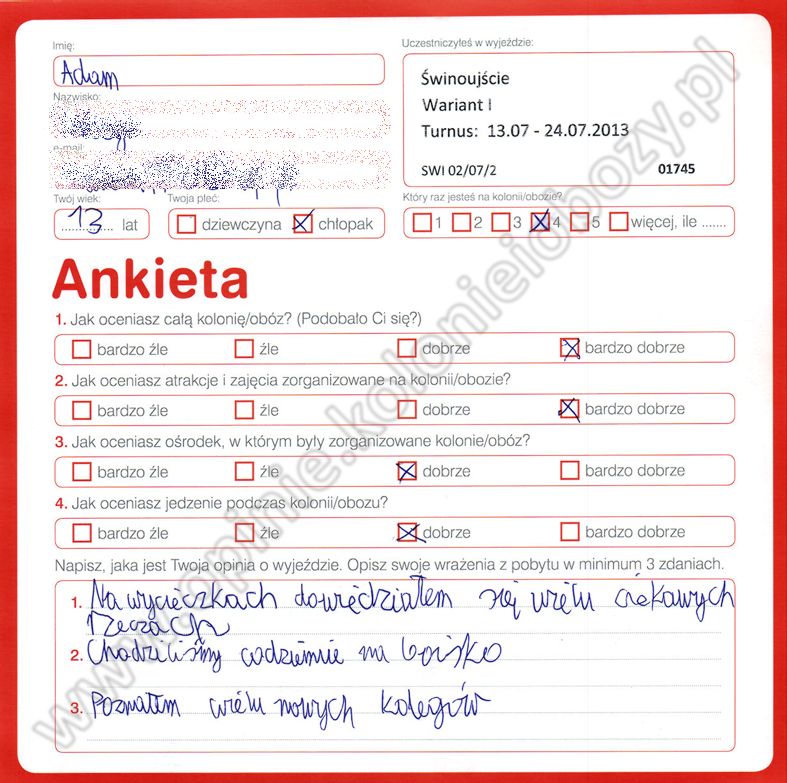 Imię:
Uczestniczyłeś w wyjeździe:
Adam
Świnoujście
Wariant I
Turnus: 13.07 - 24.07.2013
SWI 02/07/2 01745
Nazwisko:
e-mail:
Twój wiek: Twoja płeć: Który raz jesteś na kolonii/obozie?
13 lat dziewczyna chłopak 1 2 3 4 5 więcej, ile .......
Ankieta
1. Jak oceniasz całą kolonię/obóz? (Podobało Ci się?)
bardzo źle źle dobrze bardzo dobrze
2. Jak oceniasz atrakcje i zajęcia zorganizowane na kolonii/obozie?
bardzo źle źle dobrze bardzo dobrze
3. Jak oceniasz ośrodek, w którym były zorganizowane kolonie/obóz?
bardzo źle źle dobrze bardzo dobrze
4. Jak oceniasz jedzenie podczas kolonii/obozu?
bardzo źle źle dobrze bardzo dobrze
Napisz, jaka jest Twoja opinia o wyjeździe. Opisz swoje wrażenia z pobytu w minimum 3 zdaniach.
1. Na wycieczkach dowiedziałem się wielu ciekawych
rzeczach
2. Chodziliśmy codziennie na boisko
3. Poznałem wielu nowych kolegów
www.opinie.kolonieiobozy.pl